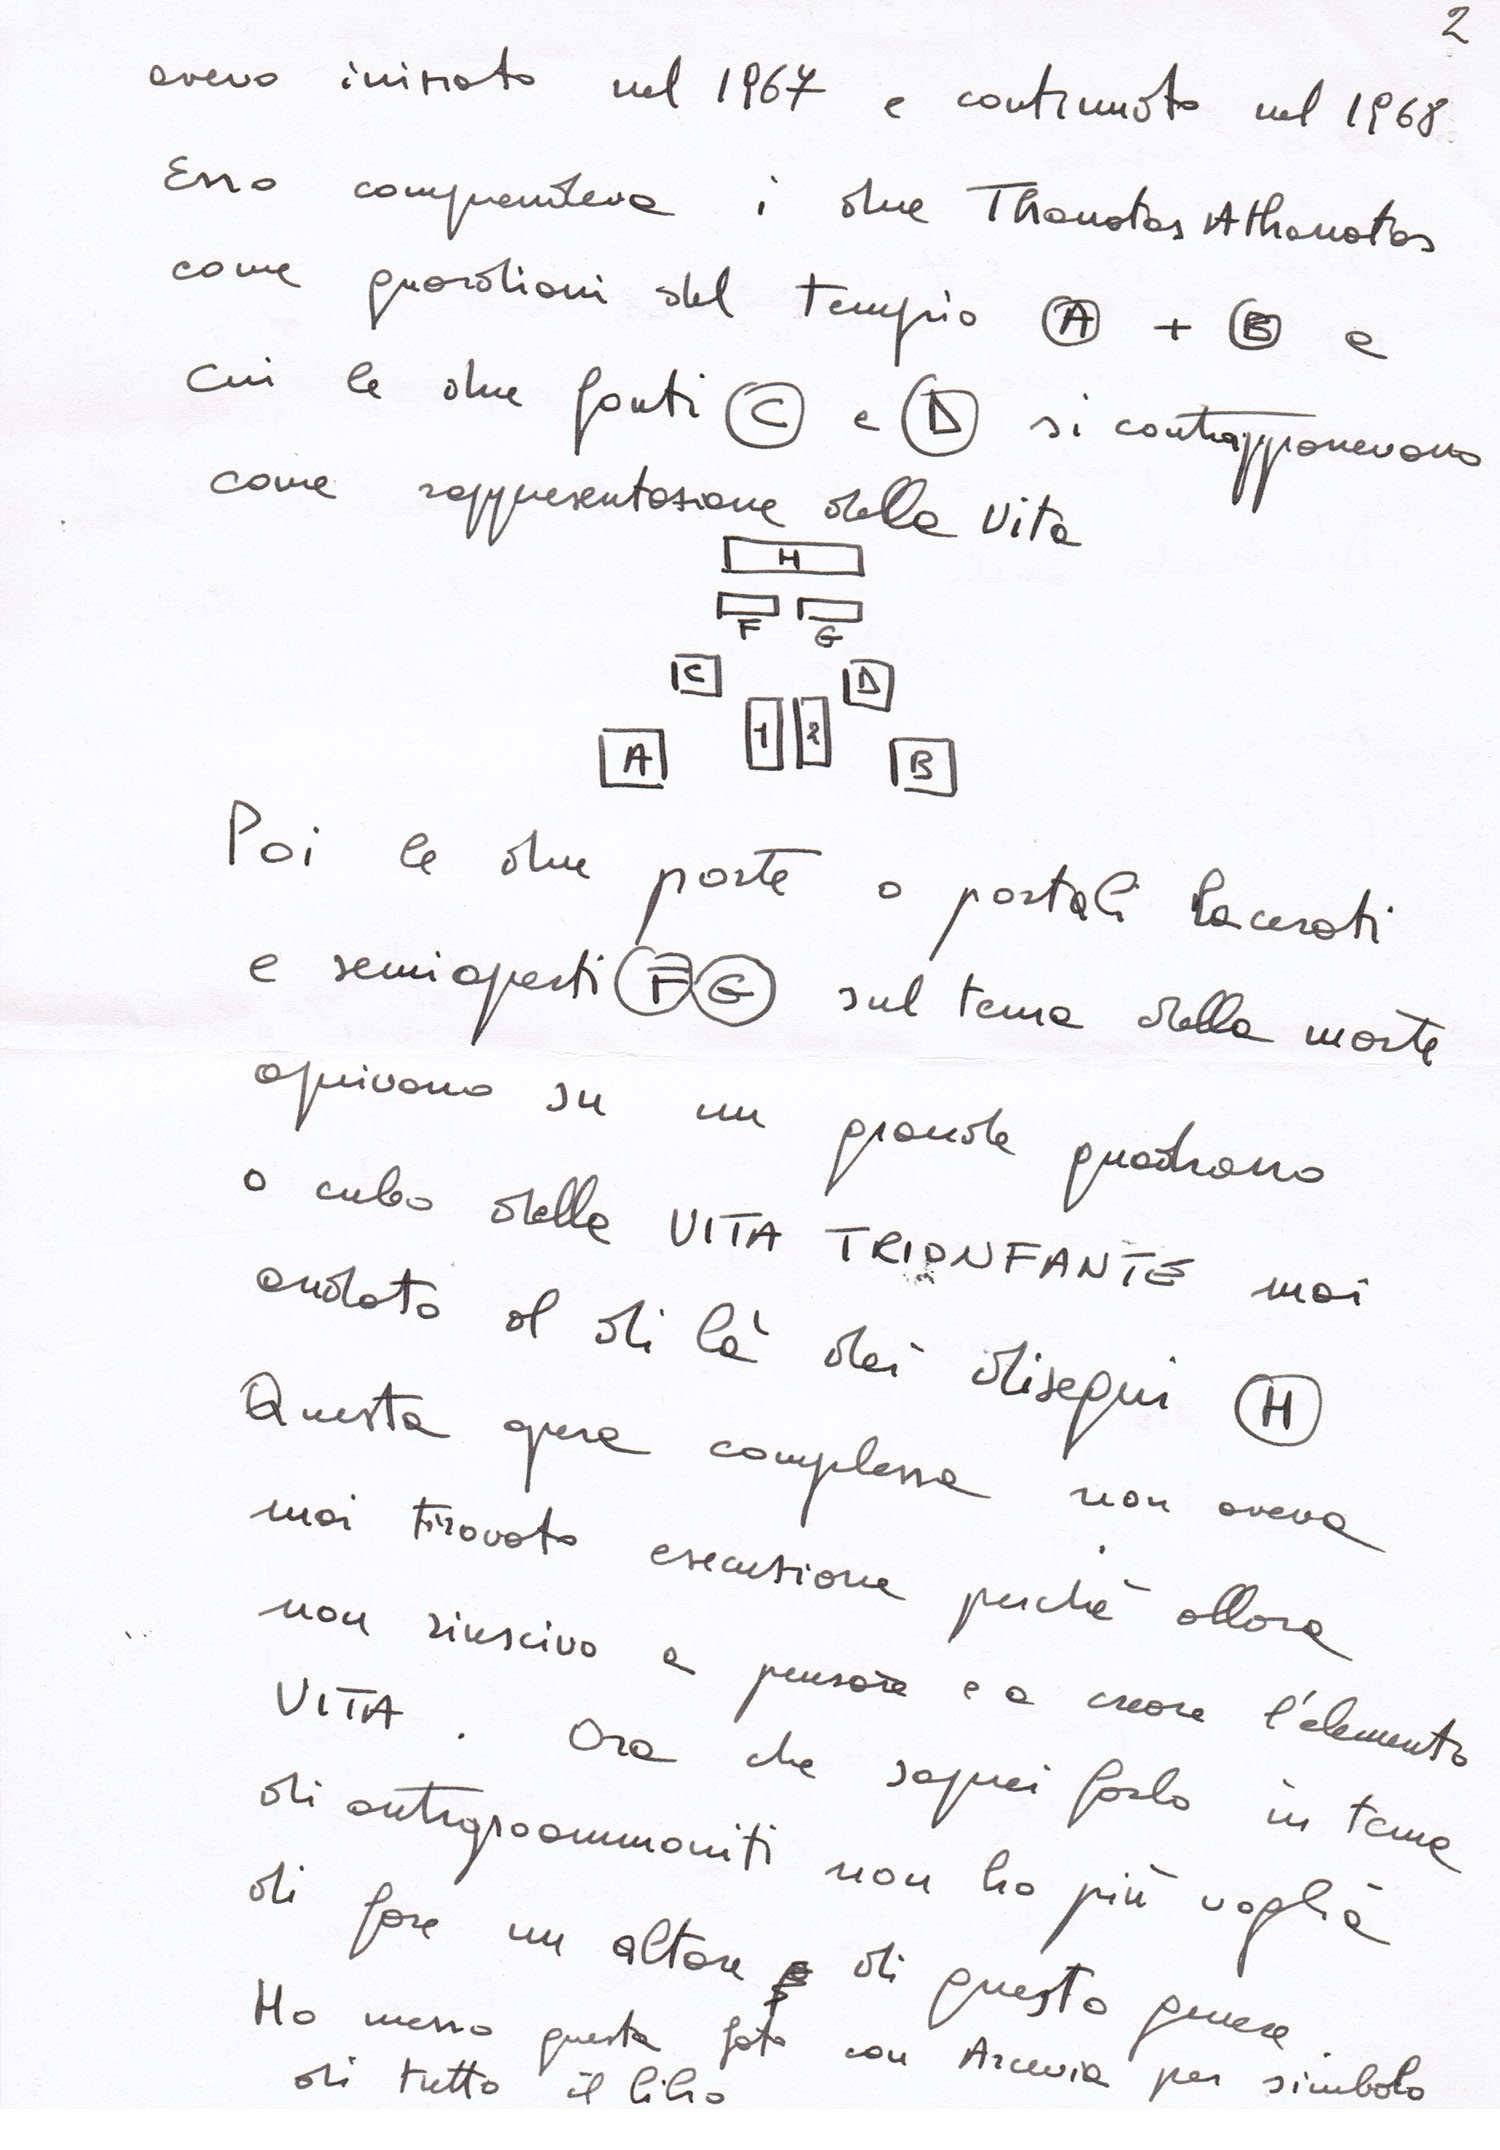 2
avevo iniziato nel 1967 e continuato nel 1968
Esso comprendeva i due Thanatos Athanatos
come guardiani del tempio A + B e
cui le due fonti C e D si contrapponevano
come rappresentazione della vita
H
F G
C D
1 2
A B
Poi le due porte o portali lacerati
e semiaperti F G sul tema della morte
aprivano su un grande quadrano
o cubo della VITA TRIONFANTE mai
andato al di là dei disegni H
Questa opera complessa non aveva
mai trovato esecuzione perchè allora
non riuscivo a pensare e a creare l'elemento
VITA. Ora che saprei farlo in tema
di antropoammoniti non ho più voglia
di fare un altare di questo genere
Ho messo questa foto con Arcevia per simbolo
di tutto il libro